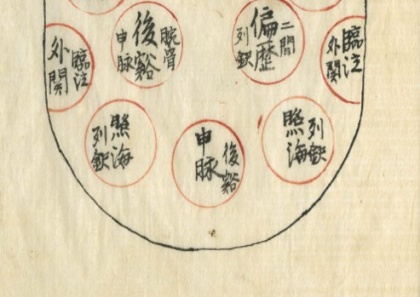 二間
偏歴
列鈌
腕骨
後谿
申脉
臨泣
外関
臨泣
外関
列鈌
照海
後谿
申脉
照海
列鈌